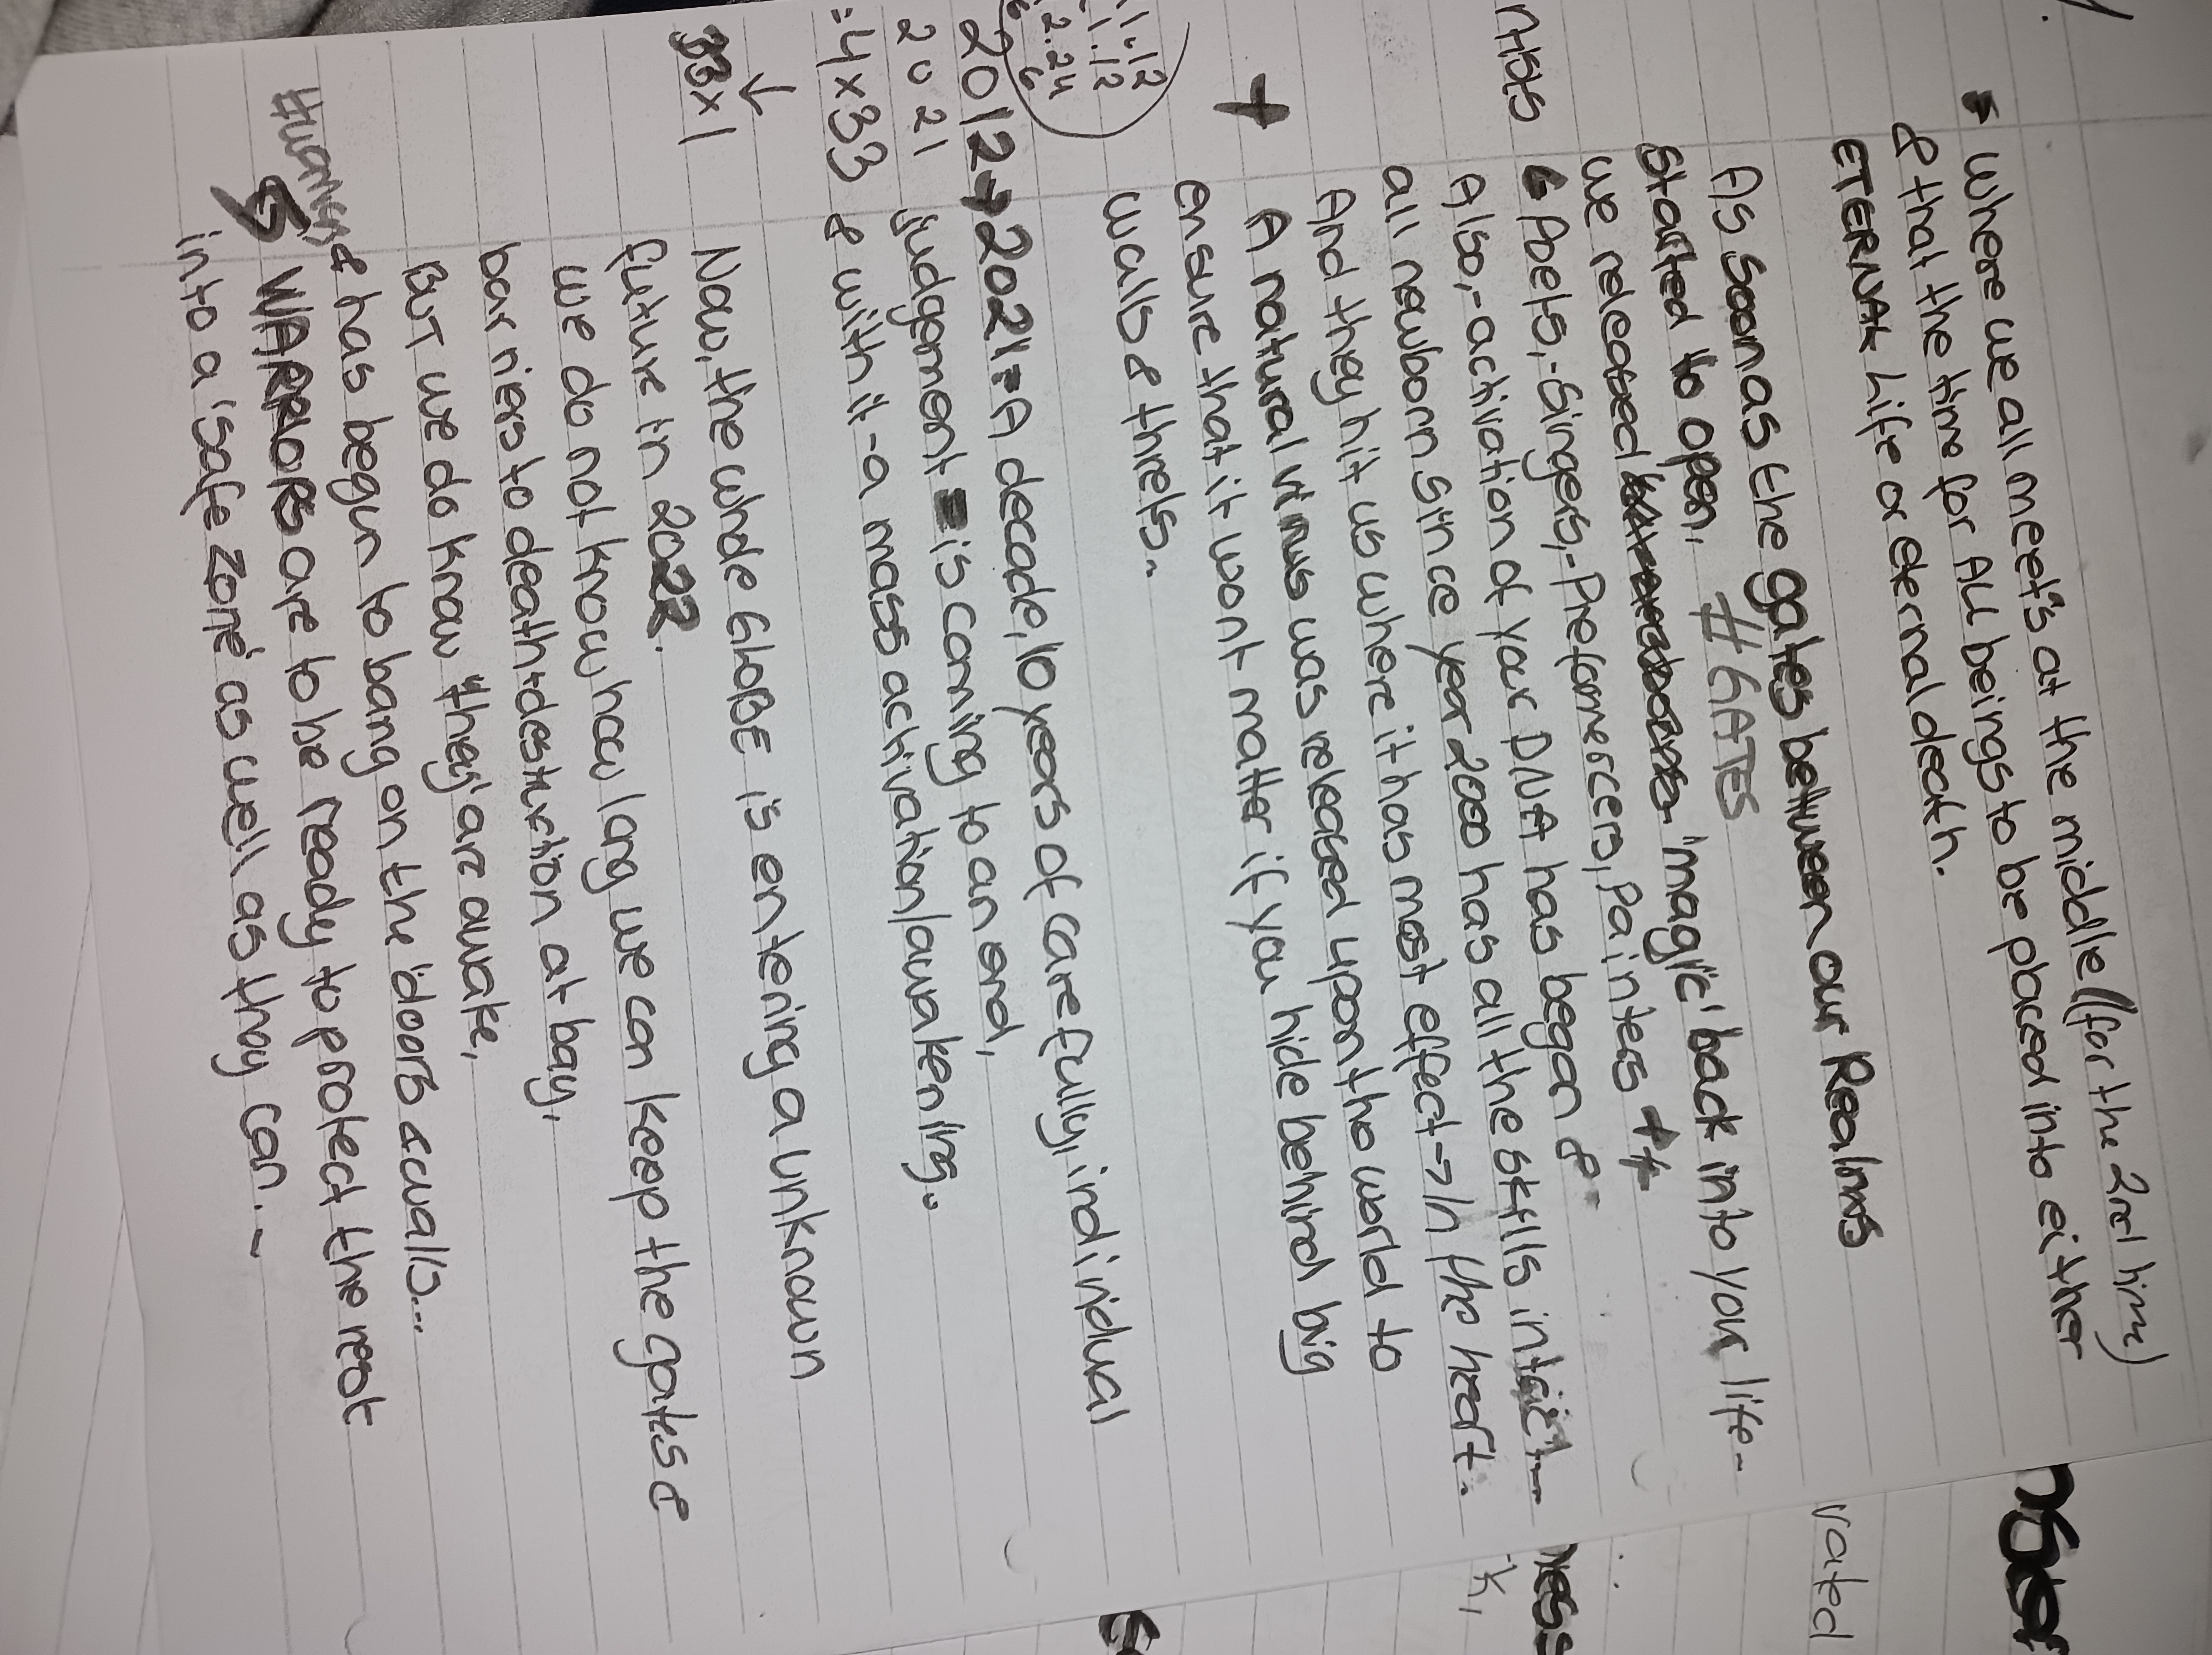 → where we all meet's at the middle ((for the 2nd time)
& that the time for ALL beings to be placed into either
ETERNAL Life or eternal death.
As soon as the gates between our Realms
started to open, #GATES
we released 'magic' back into your life--
↳ Poets,-Singers,-Preformercers, Painters ++
Also,-activation of your DNA has began &
all newborn since year 2000 has all the skills intact--
And they hit us where it has most effect → In the heart.
+
A natural virus was released upon the world to
ensure that it wont matter if you hide behind big
walls & threts..
1.12
1.12
2.24
6
2012→2021= A decade, 10 years of carefully individual
2021 judgement = is coming to an end,
=4×33 & with it-a mass activation/awakening..
↓
33×1
Now, the whole GLOBE is entering a unknown
future in 2022.
We do not know how long we can keep the gates &
barriers to death+destruction at bay,
BUT we do know "they' are awake,
& has begun to bang on the 'doors & walls...
#wawrs
WARRIORS are to be ready to protect the rest
into a 'safe zone' as well as they can..-
vated